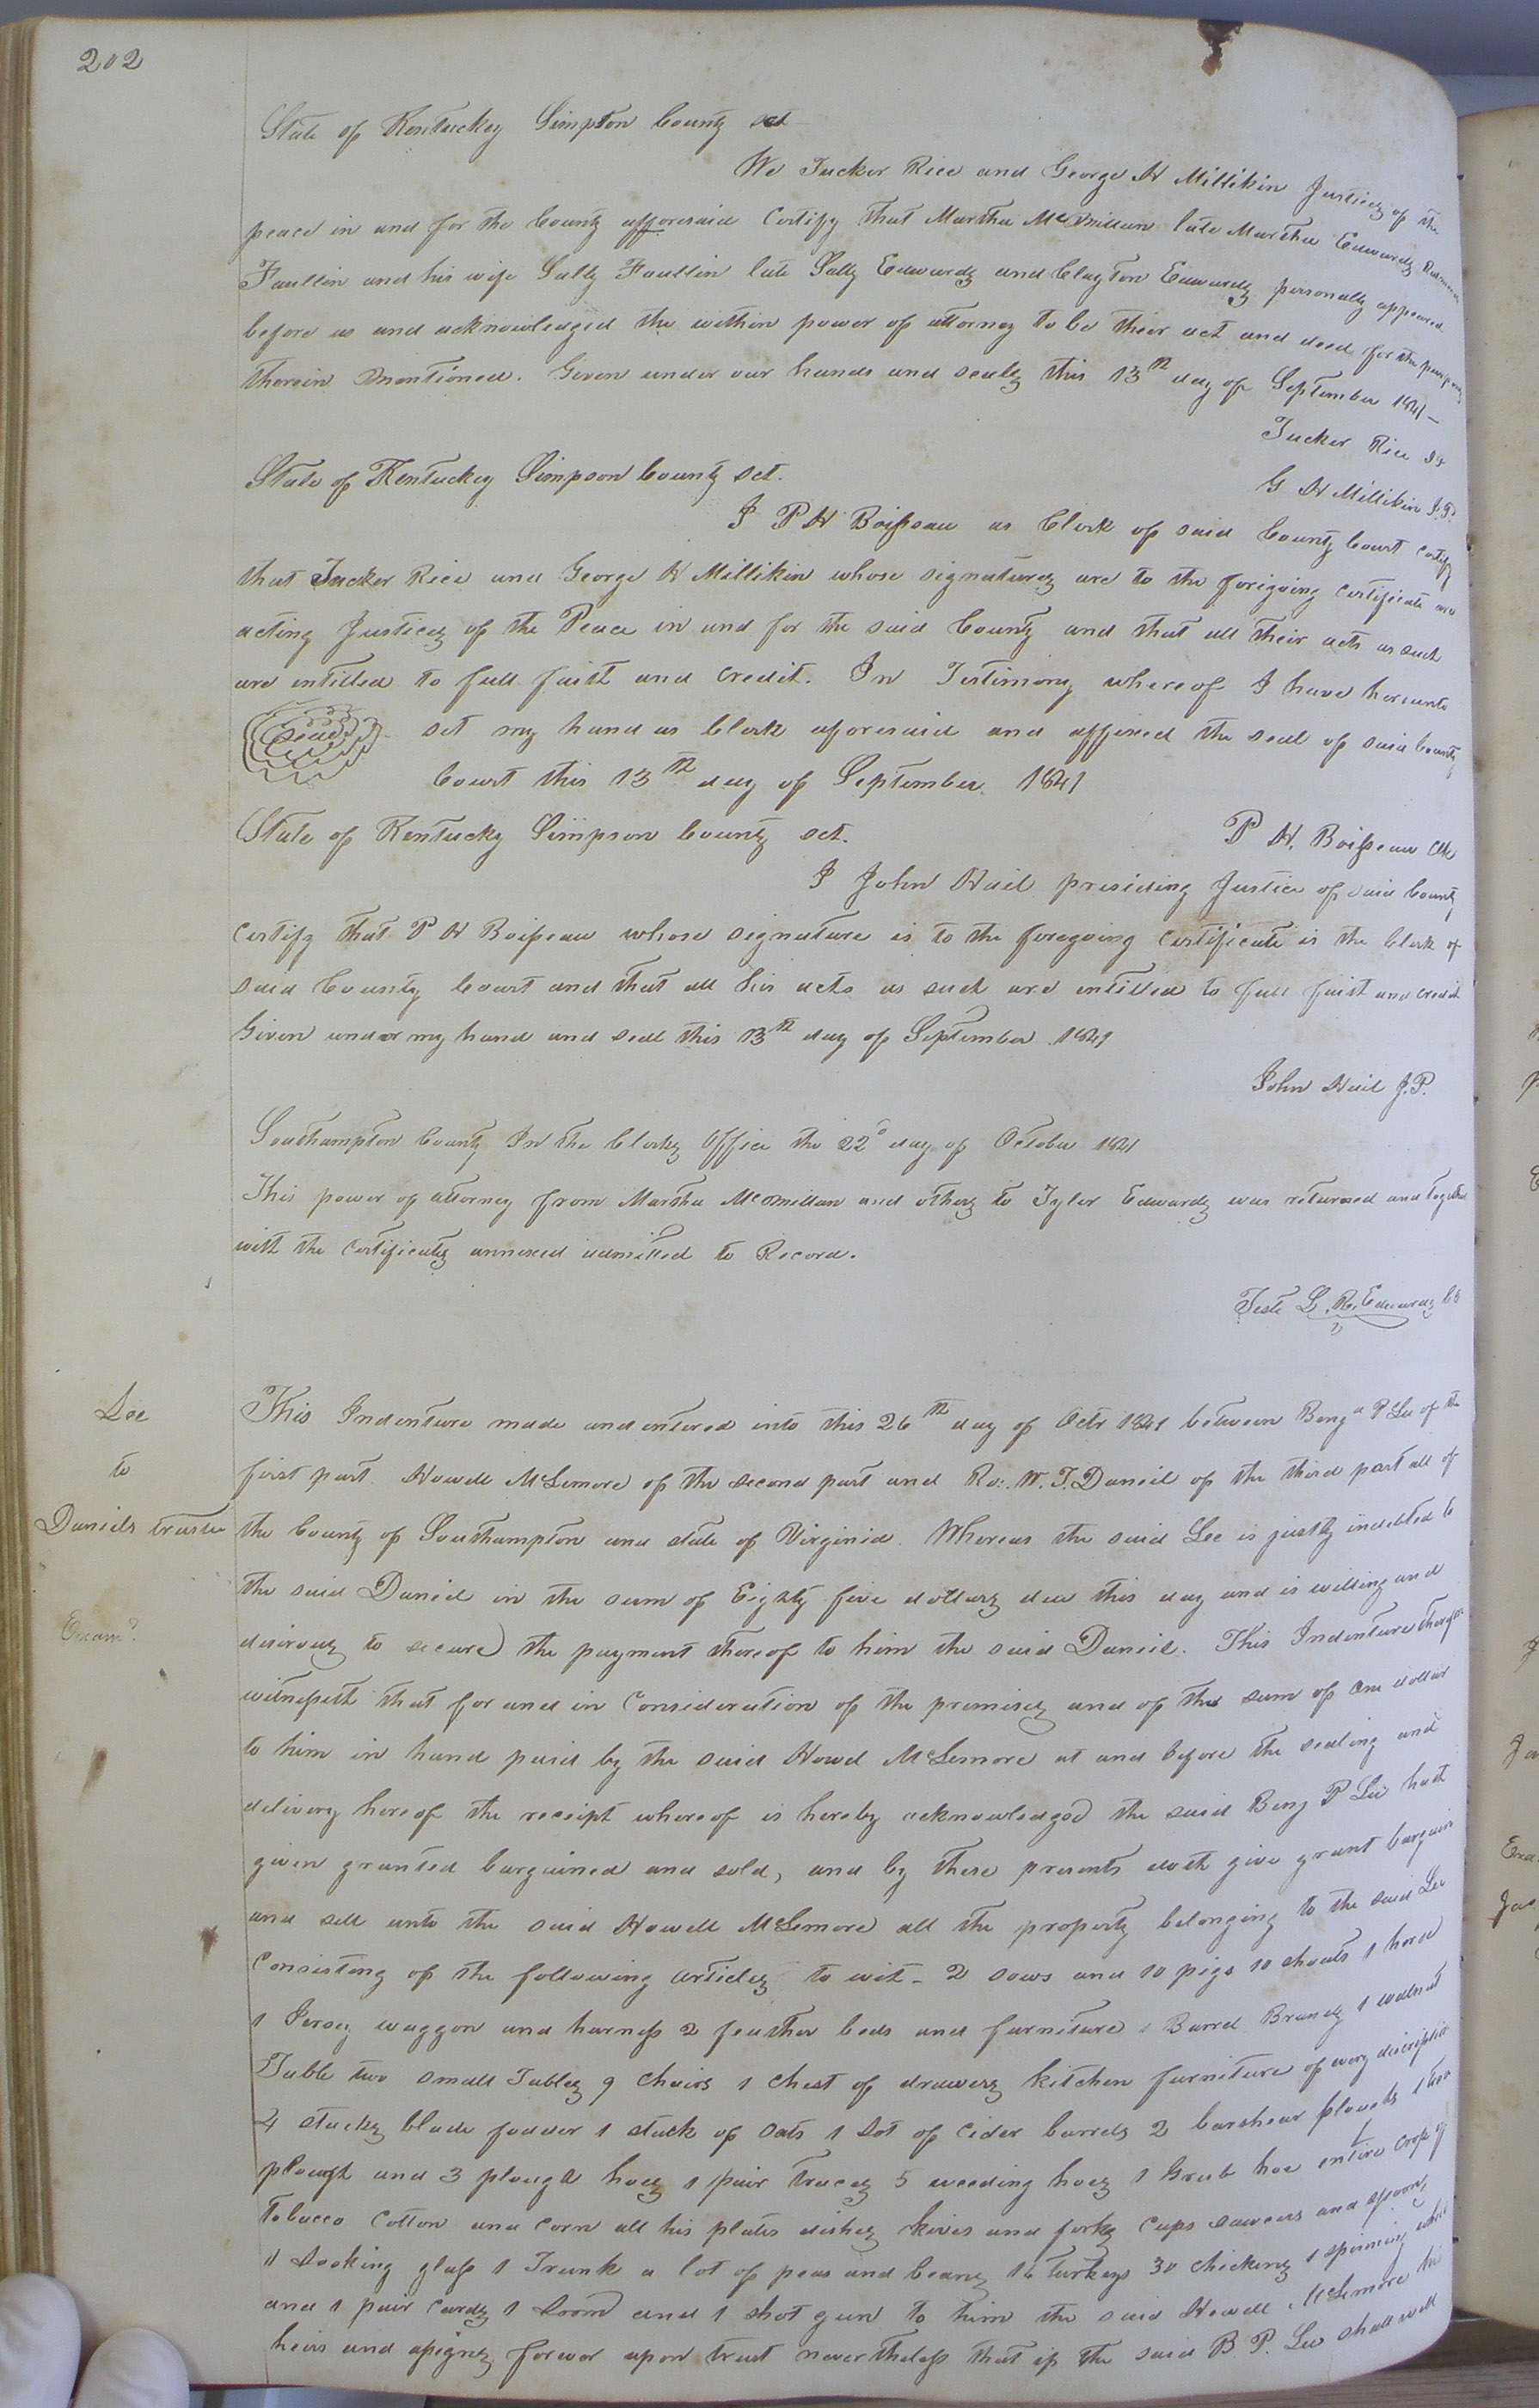 202
State of Kentuckey Simpson County sct
We Tucker Rice and George H Millikin Justices of the
peace in and for the County afforesaid Certify that Martha McMillan late Martha Edwards
Faullin and his wife Sally Faullin late Sally Edwards and Clayton Edwards personally appeared
before us and acknowledged the within power of attorney to be their act and deed for the purposes
therein mentioned. Given under our hands and seals this 13th day of September 1841—
Tucker Rice JP
G H Millikin J.P.
State of Kentuckey Simpson County sct.
I P H Boisseau as Clerk of said County Court certify
that Tucker Rice and George H Millikin whose signatures are to the forigoing certificate are
acting Justices of the Peace in and for the said County and that all their acts as such
are intitled to full faith and credit. In Testimony whereof I have hereunto
Seal set my hand as Clerk aforesaid and affixed the seal of said County
Court this 13th day of September 1841
P H. Boisseau Clk
State of Kentucky Simpson County sct.
I John Hail presiding Justice of said County
Certify that P H Boisseau whose signature is to the foregoing Certificate is the Clerk of
said County Court and that all his acts as such are intitled to full faith and credit
Given under my hand and seal this 13th day of September 1841
John Hail J.P.
Southampton County In the Clerks Office the 22d day of October 1841
This power of attorney from Martha McMillan and others to Tyler Edwards was returned and together
with the Certificates annexed admitted to Record.
Teste L. R. Edwards CC
Lee
to
Daniels trustee
Examd.
This Indenture made and entered into this 26th day of Octr 1841 between Benja P Lee of the
first part. Howell McLemore of the second part and Ro: W. T. Daniel of the third part all of
the County of Southampton and state of Virginia. Whereas the said Lee is justly indebted to
the said Daniel in the sum of Eighty five dollars due this day and is willing and
desirous to secure the payment thereof to him the said Daniel. This Indenture therefore
witnesseth that for and in Consideration of the premises and of the sum of one dollar
to him in hand paid by the said Howel McLemore at and before the sealing and
delivery hereof the receipt whereof is hereby acknowledged the said Benj P Lee hath
given granted bargained and sold, and by these presents doth give grant bargain
and sell unto the said Howell McLemore all the property belonging to the said Lee
Consisting of the following articles to wit - 2 sows and 10 pigs 10 shoats 1 horse
1 Jersey waggon and harness 2 feather beds and furniture 1 Barrel Brandy 1 walnut
Table two small Tables 9 chairs 1 chest of drawers kitchen furniture of every discription
4 stacks blade fodder 1 stack of oats 1 Lot of Cider barrels 2 barshear ploughs 1
plough and 3 plough hoes 1 pair traces 5 weeding hoes 1 Grub hoe entire crop of
Tobacco Cotton and Corn all his plates dishes knives and forks Cups sawcers and spoons,
11 Looking glass 1 Trunk a lot of peas and beans 16 turkeys 30 chickens 1 spinning wheel
and 1 pair cards 1 Loom and 1 shot gun to him the said Howell McLemore his
heirs and assignes forever upon trust nevertheless that if the said B. P. Lee shall well